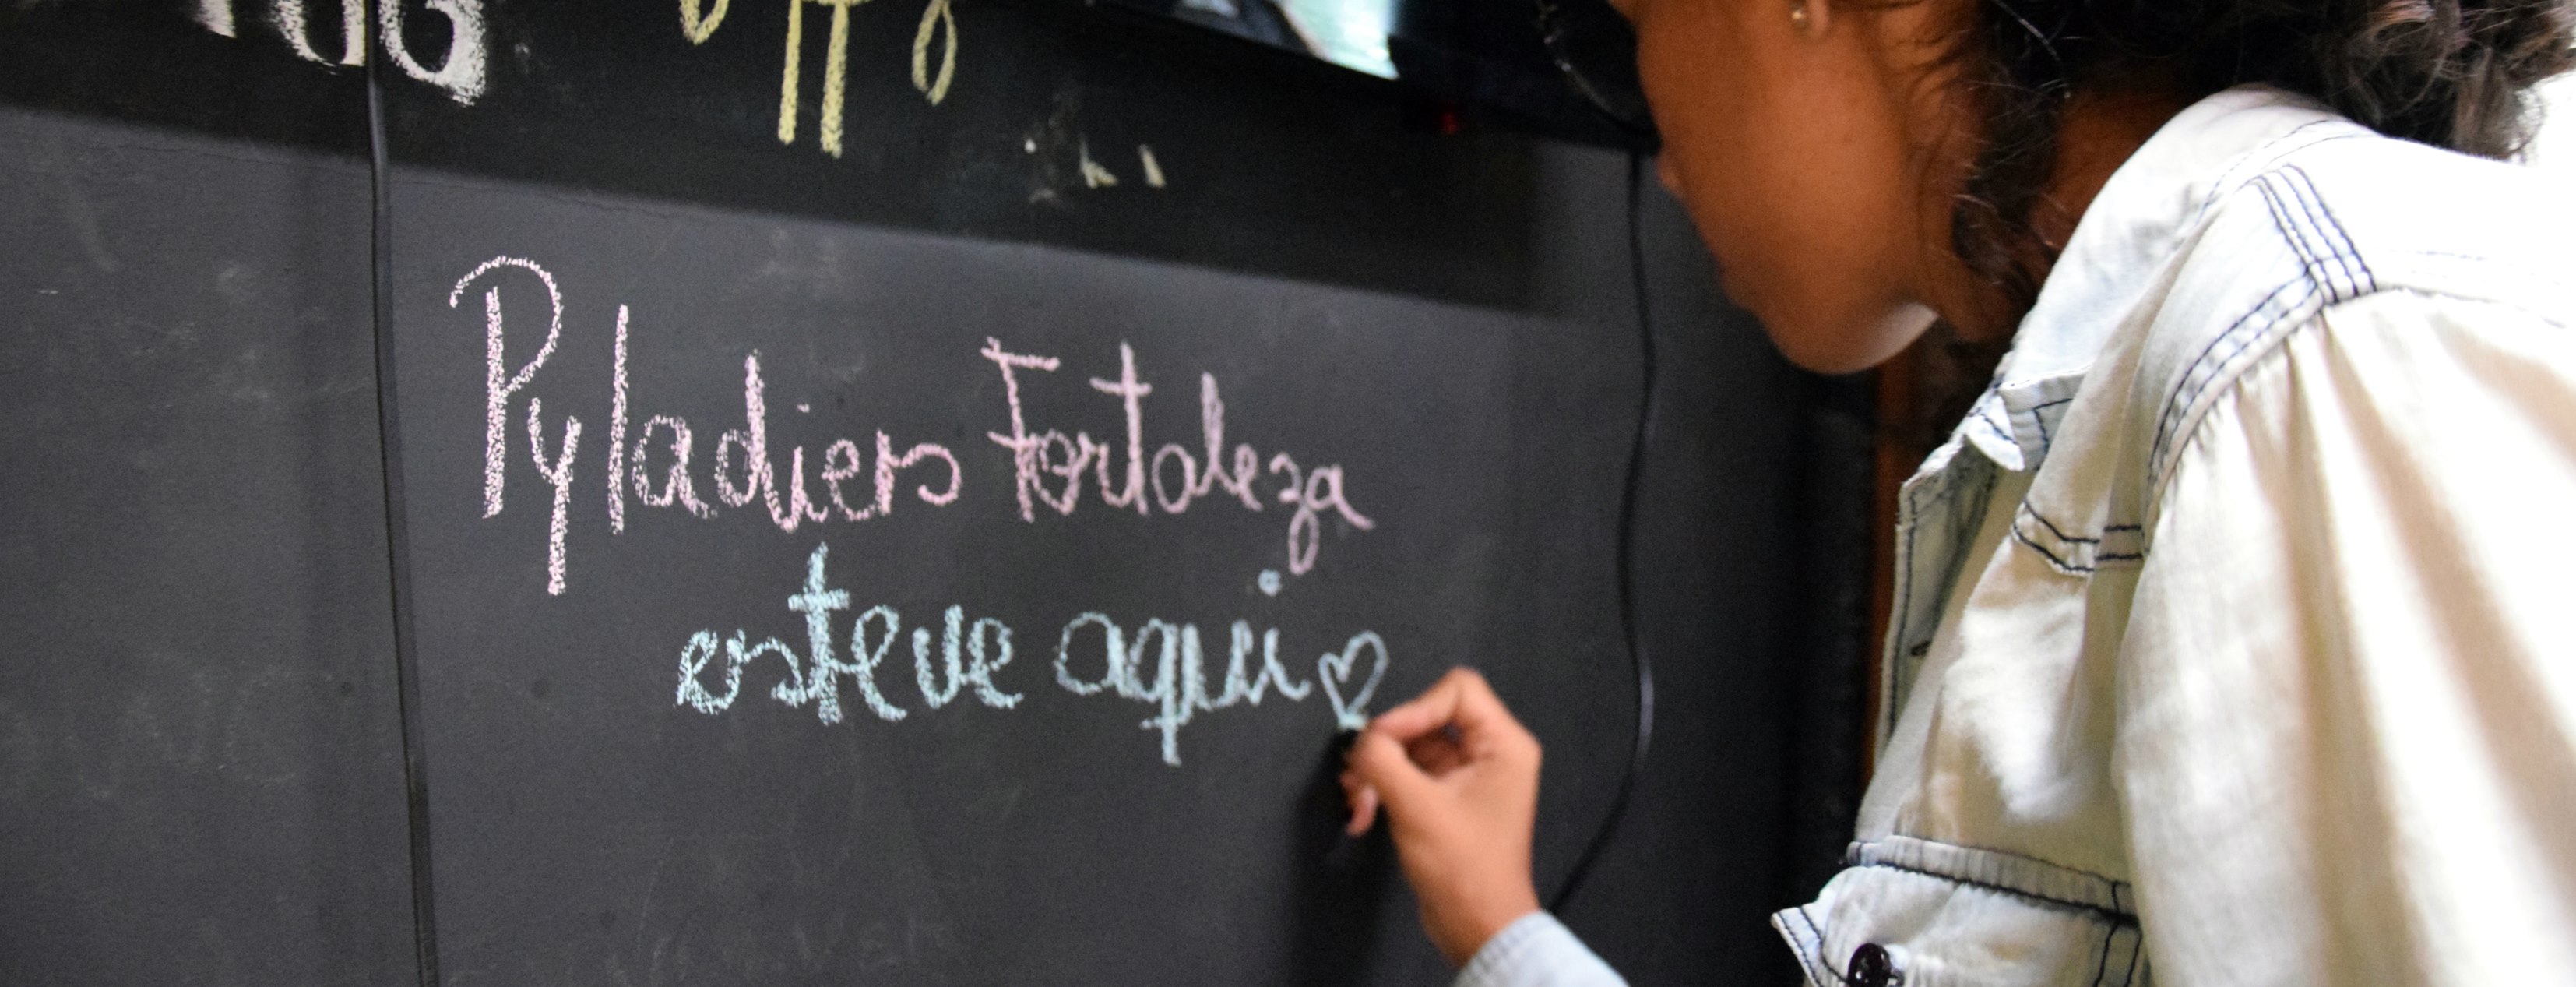 Pyladies Fortaleza
esteve aqui ♡